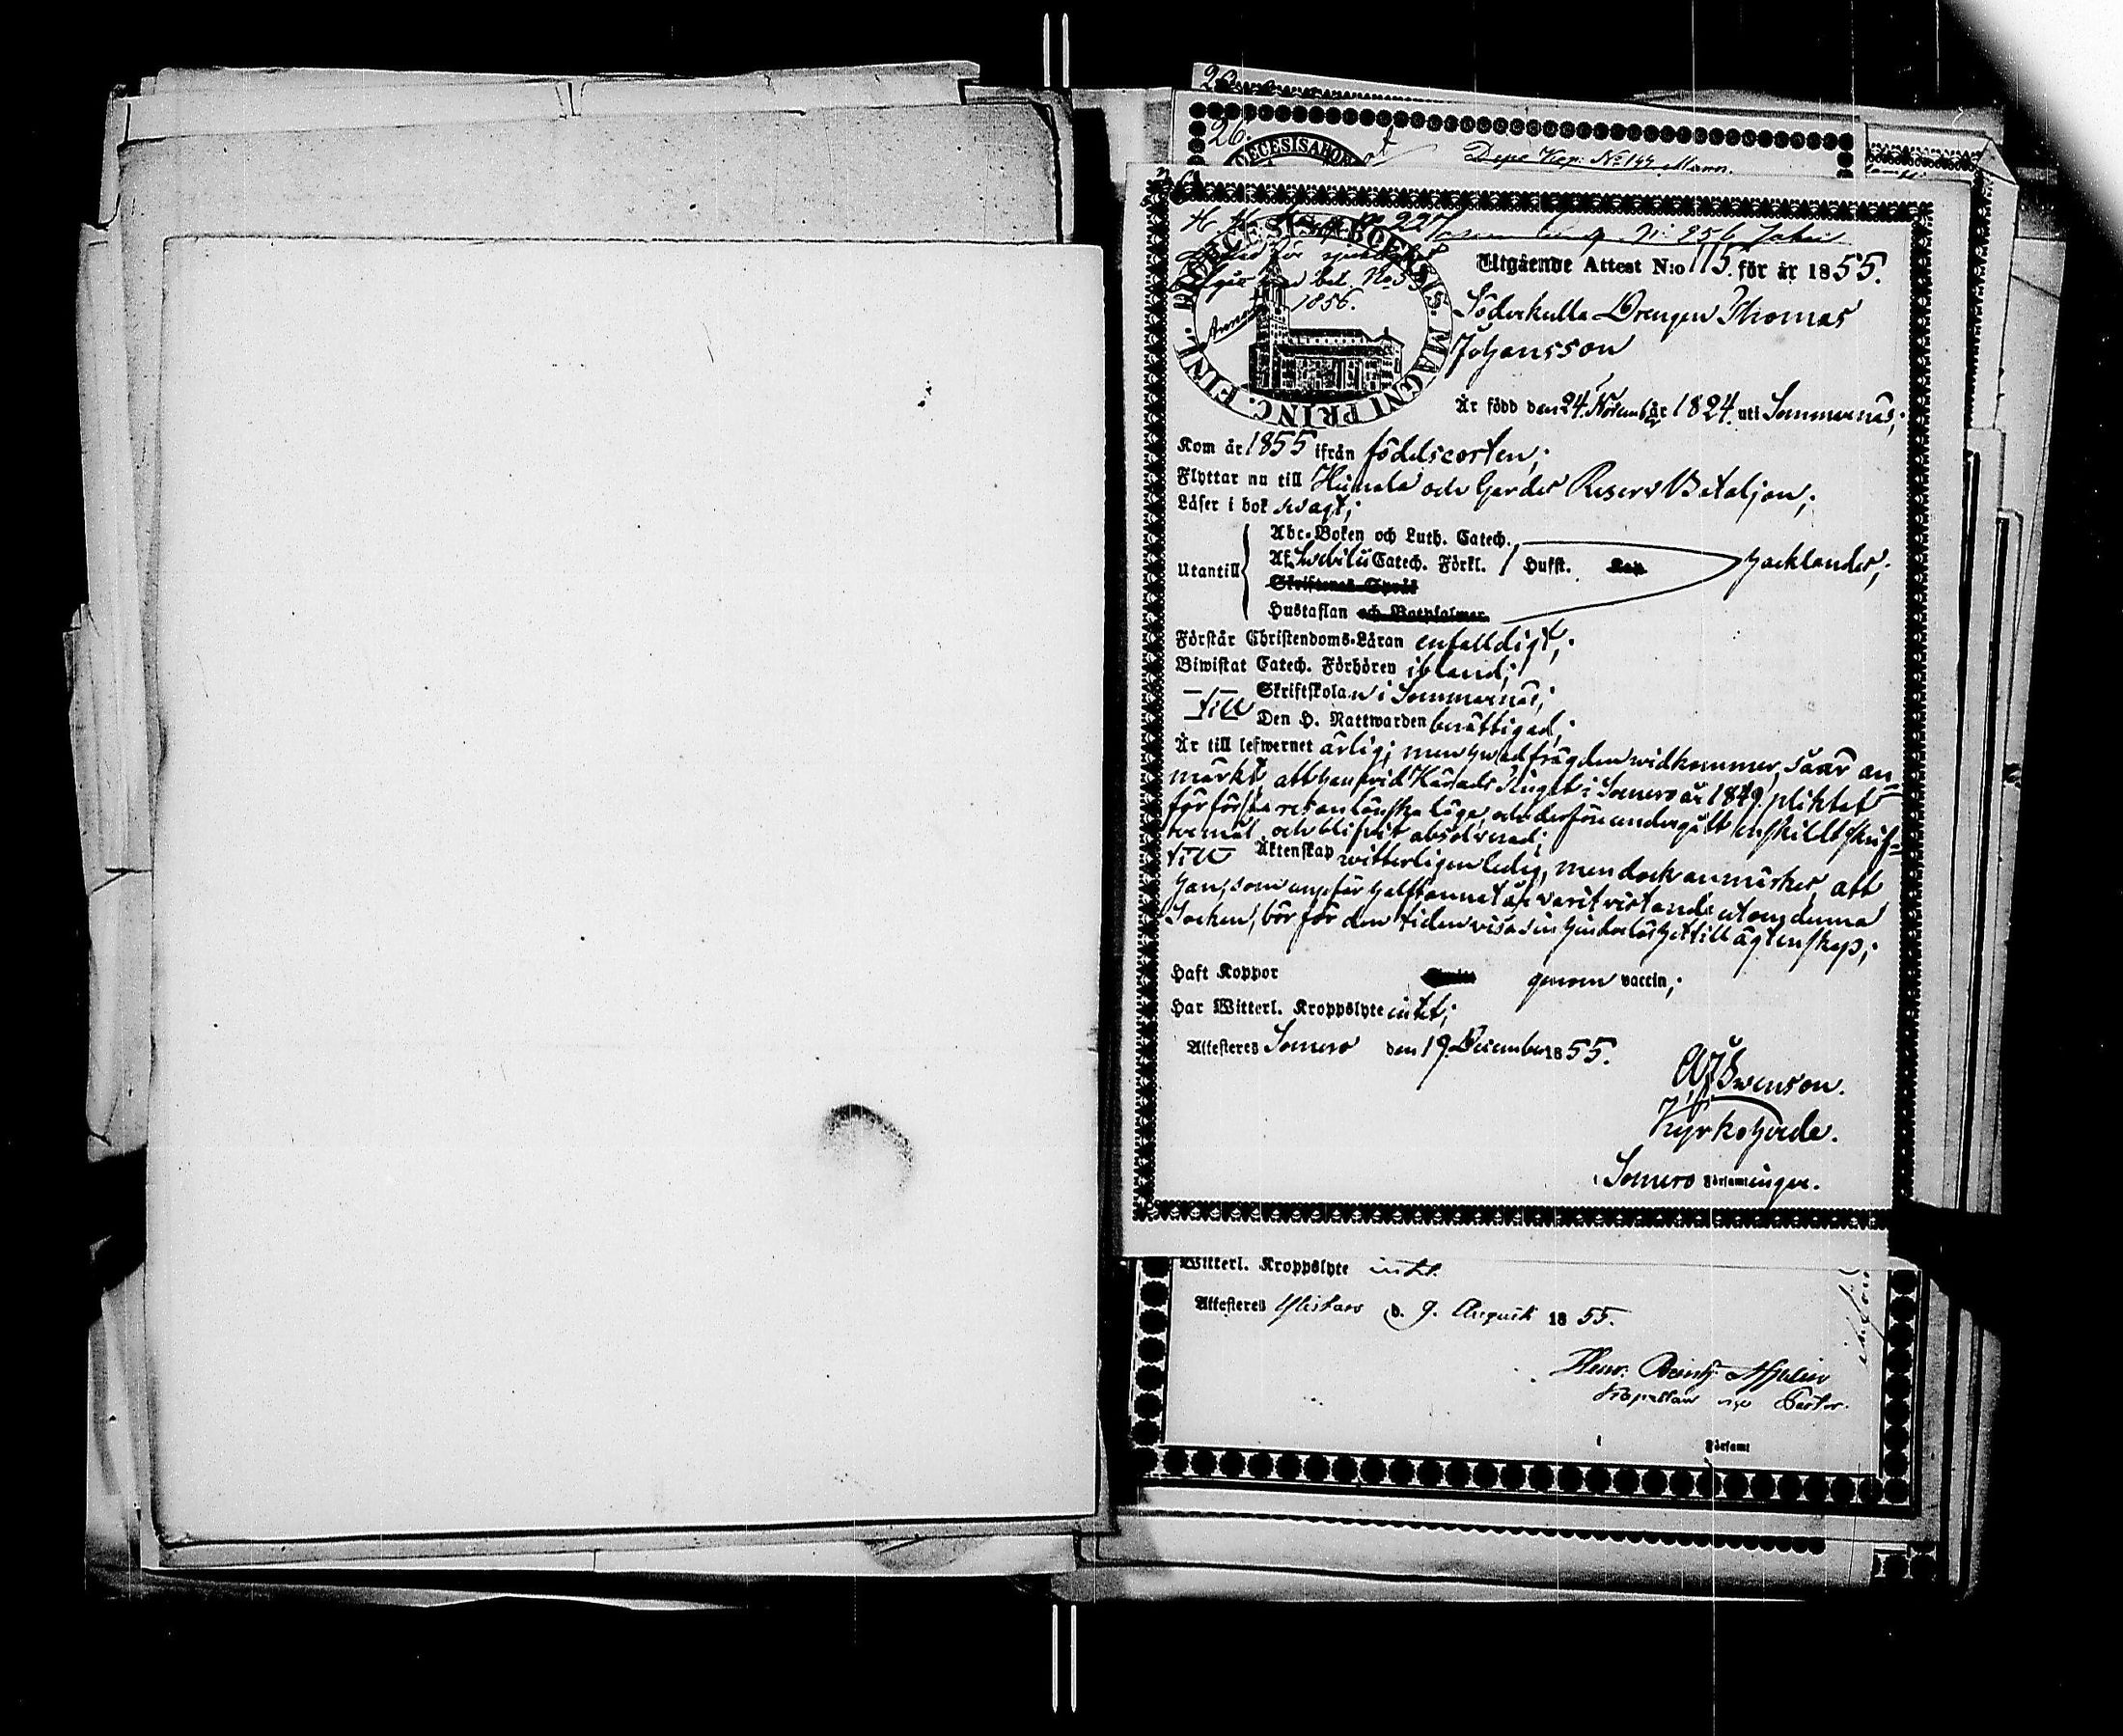 26.
DIOECESIS ABOE
Depe Kep: No 144 Mann.
26
1856.
DIOECESIS ABOENSIS. MAGNI PRINC. FINL.
Utgående Attest N:o 115. för år 1855.
Söderkulla Drengen Thomas
Johansson
Är född den 24 November 1824 uti Sommernäs;
Kom år 1855 ifrån födelseorten;
Flyttar nu till och Gardes Reserv Bataljon;
Läser i bok svagt;
Utantill
Abc-Boken och Luth. Catech.
Af Svebilii Catech. Förkl. / Husst.
Skriftenes Språk
Hustaflan och Botpsalmer
hacklandes;
Förstår Christendoms-Läran enfalldigt;
Biwistat Catech. Förhören ibland;
Skriftskolan i Sommernäs;
till
Den H. Nattwarden berättigad;
Är till lefwernet ärlig; men hvad frägden widkommer, så är an-
märkt, att han vid Härads Tinget i Somero år 1849 pliktat
för första resan lönska läge, och derföre undergått enskildt skrif-
termål, och blifvit absolverad;
till Äktenskap witterligen ledig, men dock anmärkes att
han, som ungefär halftannat år varit vistande utom denna
Socken, bör för den tiden visa sin hinderlöshet till ägtenskap;
Haft Koppor genom vaccin;
Har Witterl. Kroppslyte intet;
Attesteres Somero den 19 December 1855.
Swenson.
Kyrkoherde.
i Somero Församlingen.
Witterl. Kroppslyte intet.
Attesteres d. 9. Augusti 1855.
Kapellan vice Pastor.
i Församl